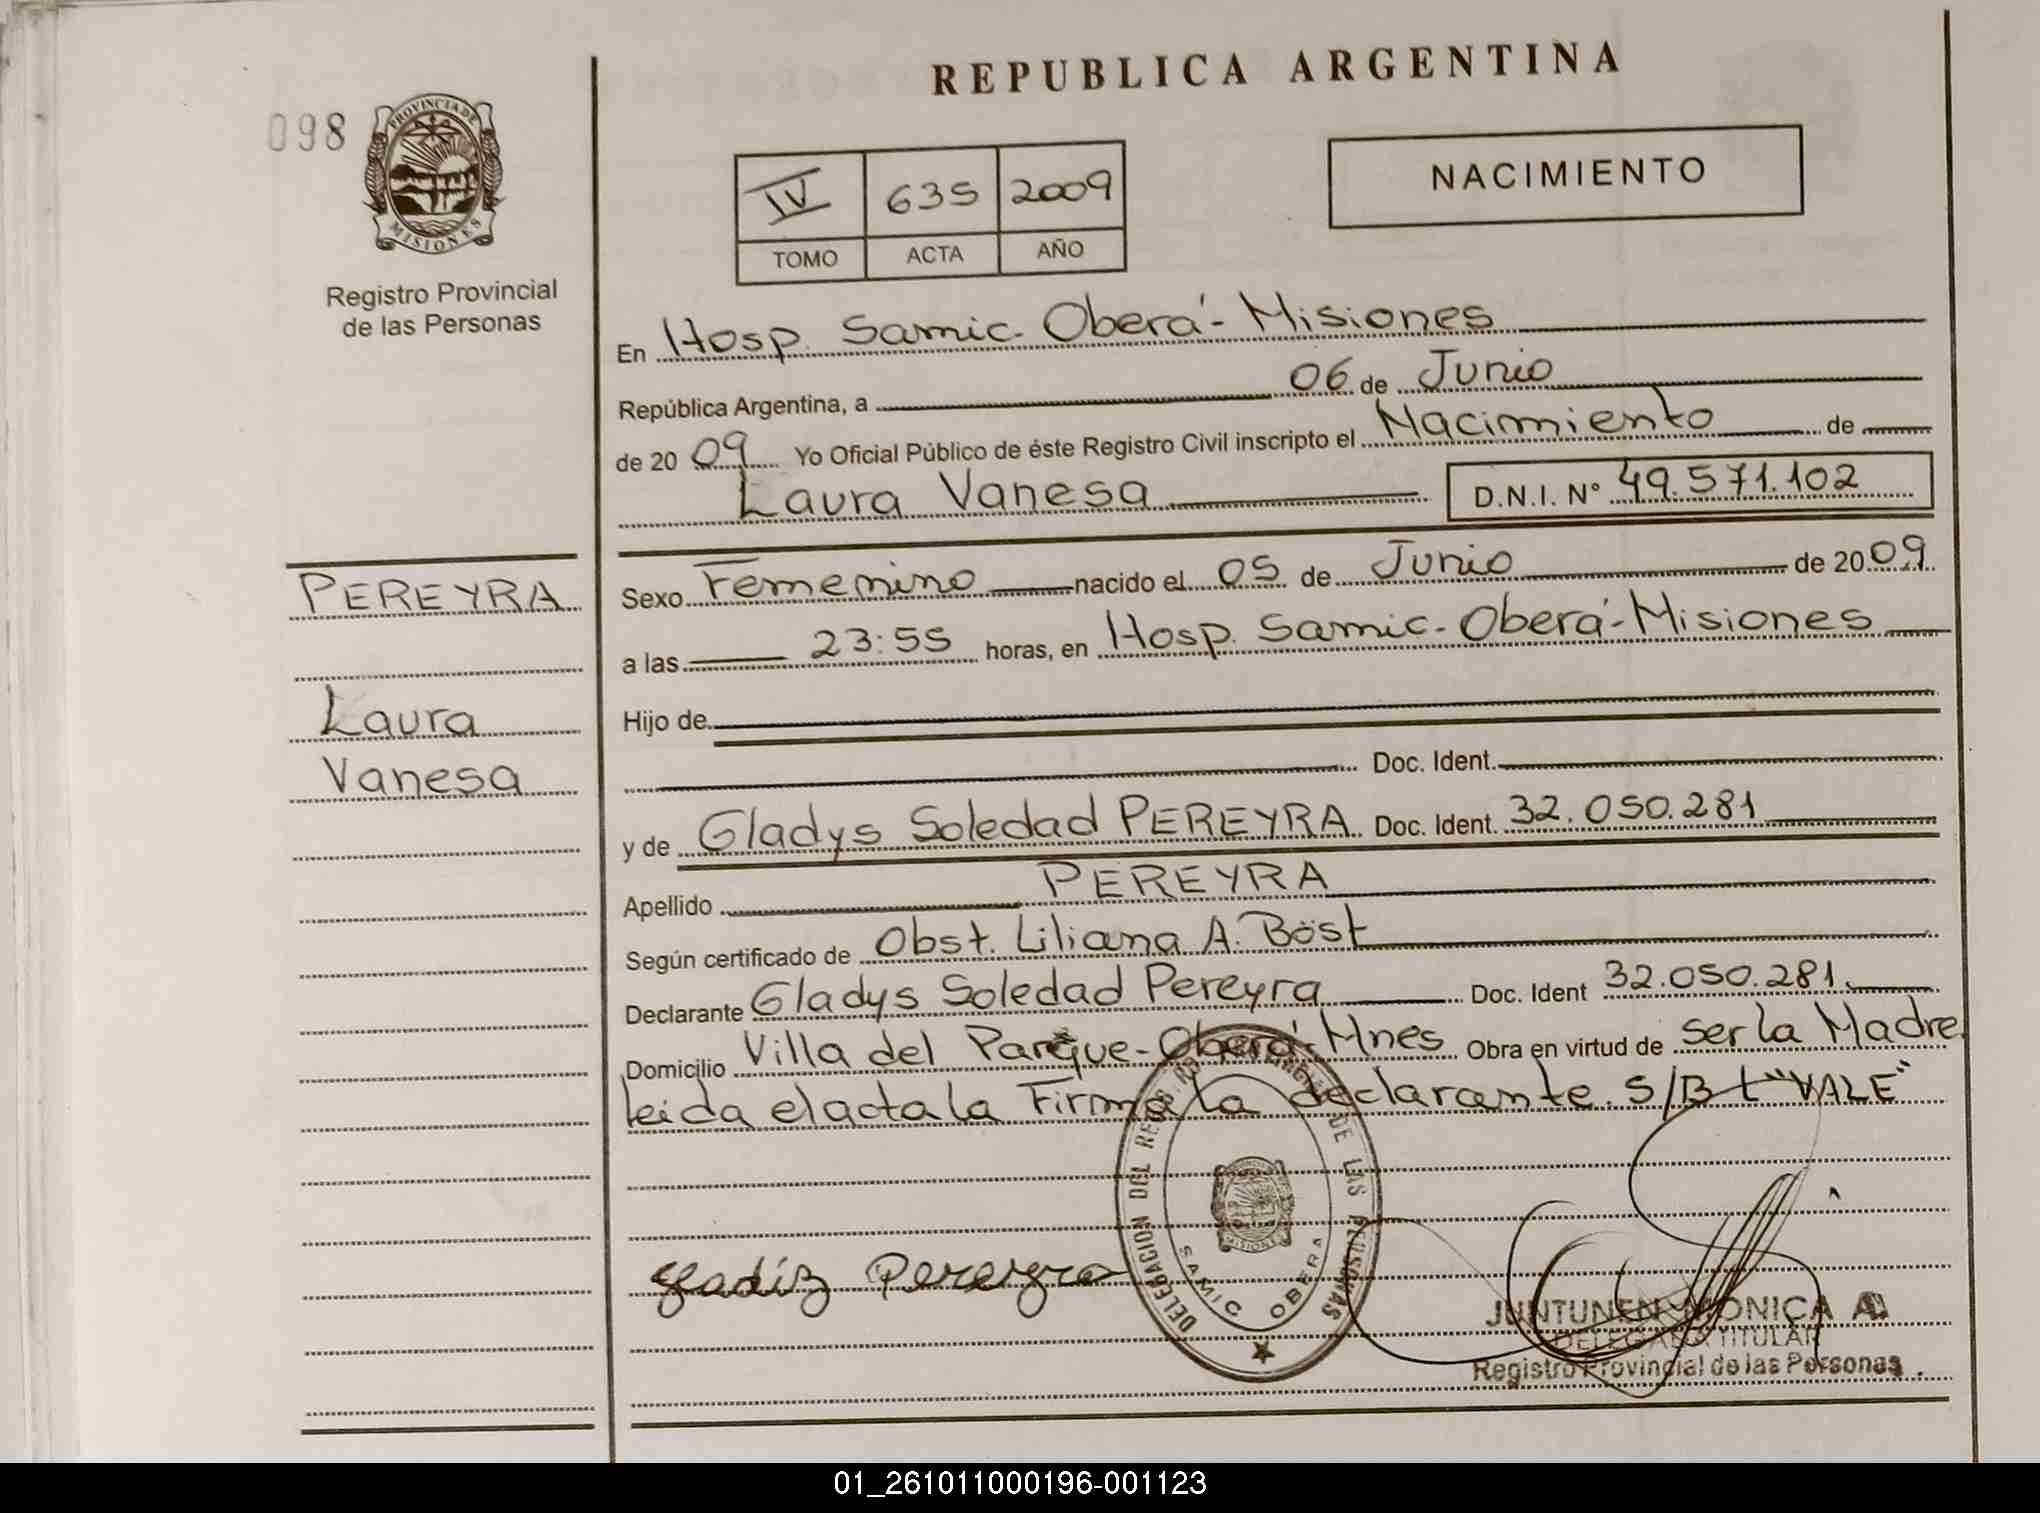 REPUBLICA ARGENTINA
098
PROVINCIA DE
MISIONES
Registro Provincial
de las Personas
IV 635 2009
TOMO ACTA AÑO
NACIMIENTO
En Hosp. Samic. Oberá - Misiones
República Argentina, a 06 de Junio
de 20 09 Yo Oficial Público de éste Registro Civil inscripto el Nacimiento de
Laura Vanesa D.N.I. Nº 49.571.102
PEREYRA
Laura
Vanesa
Sexo Femenino nacido el 05 de Junio de 20 09
a las 23:55 horas, en Hosp. Samic. Oberá - Misiones
Hijo de
Doc. Ident.
y de Gladys Soledad PEREYRA Doc. Ident. 32.050.281
Apellido PEREYRA
Según certificado de Obst. Liliana A. Böst
Declarante Gladys Soledad Pereyra Doc. Ident 32.050.281
Domicilio Villa del Parque - Oberá - Mnes Obra en virtud de ser la Madre
leida el acta la Firma la declarante. S/B t "VALE"
DELEGACION DEL DE LAS PERSONAS
MISIONES
SAMIC OBERA
Pereyra
JUNTUNEN MONICA A.
DELEGADA TITULAR
Registro Provincial de las Personas
01_261011000196-001123